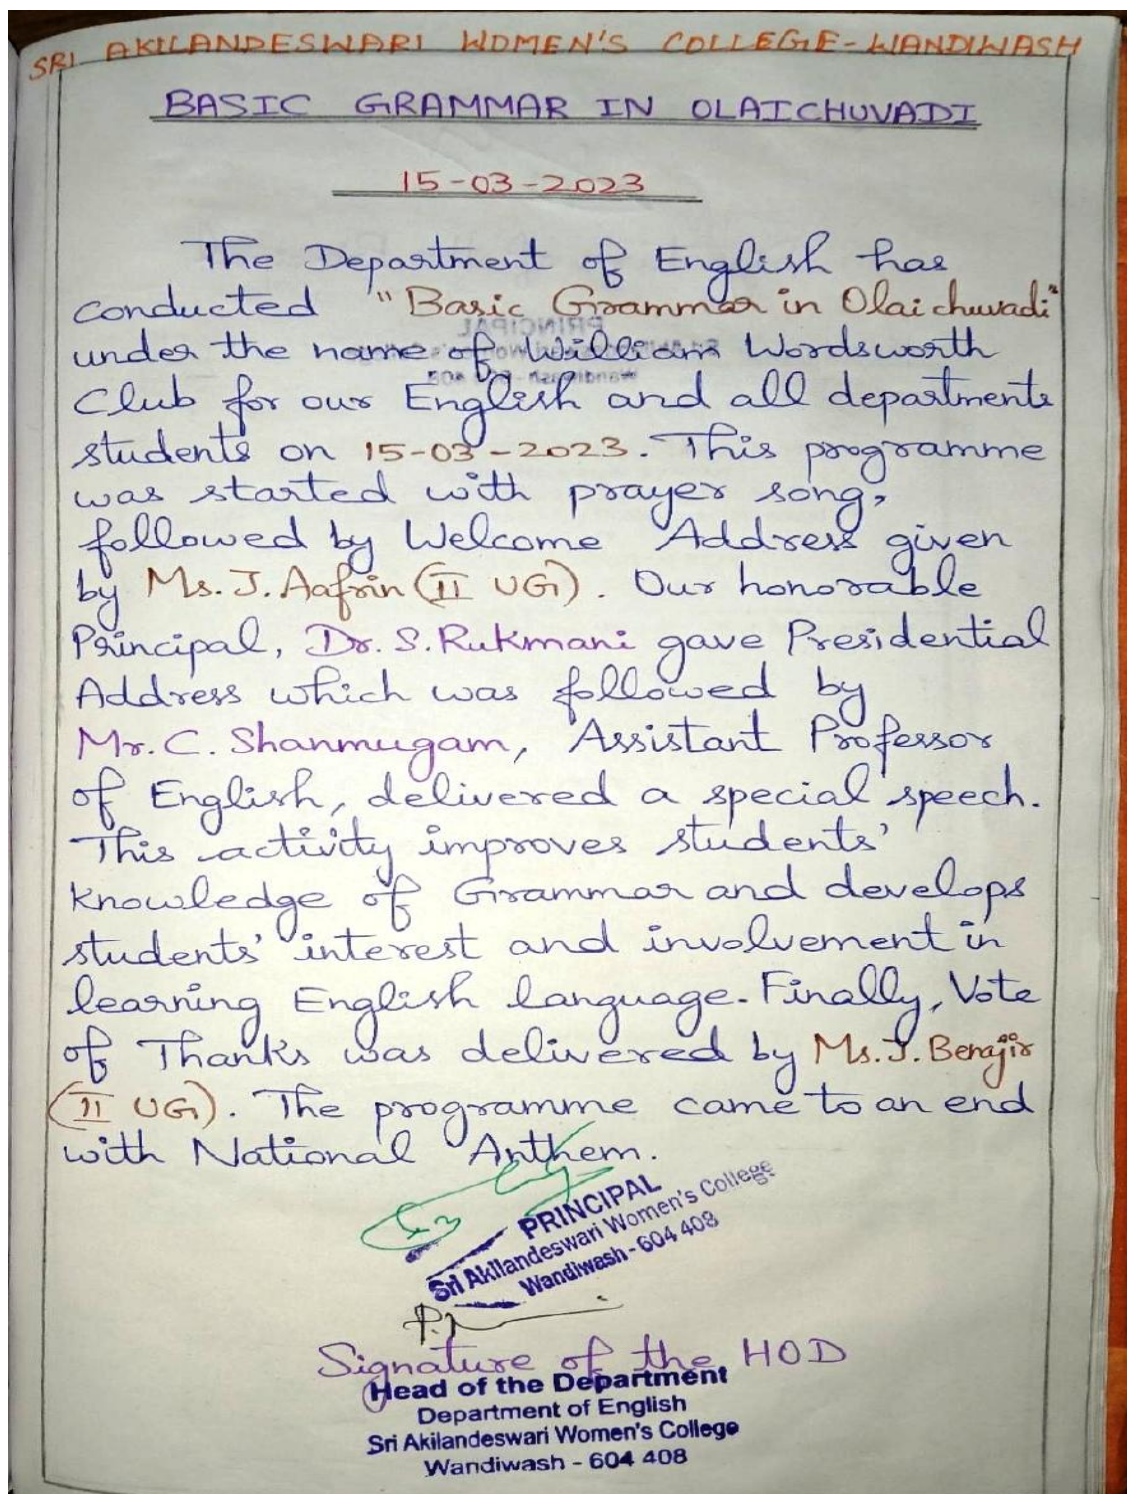 SRI AKILANDESWARI WOMEN'S COLLEGE-WANDIWASH
BASIC GRAMMAR IN OLAICHUVADI
15-03-2023
The Department of English has
conducted "Basic Grammar in Olaichuvadi"
under the name of William Wordsworth
Club for our English and all departments
students on 15-03-2023. This programme
was started with prayer song,
followed by Welcome Address given
by Ms. J. Aafrin (II UG). Our honorable
Principal, Dr. S. Rukmani gave Presidential
Address which was followed by
Mr. C. Shanmugam, Assistant Professor
of English, delivered a special speech.
This activity improves students'
knowledge of Grammar and develops
students' interest and involvement in
learning English language. Finally, Vote
of Thanks was delivered by Ms. J. Benajir
(II UG). The programme came to an end
with National Anthem.
PRINCIPAL
Sri Akilandeswari Women's College
Wandiwash - 604 408
Signature of the HOD
Head of the Department
Department of English
Sri Akilandeswari Women's College
Wandiwash - 604 408